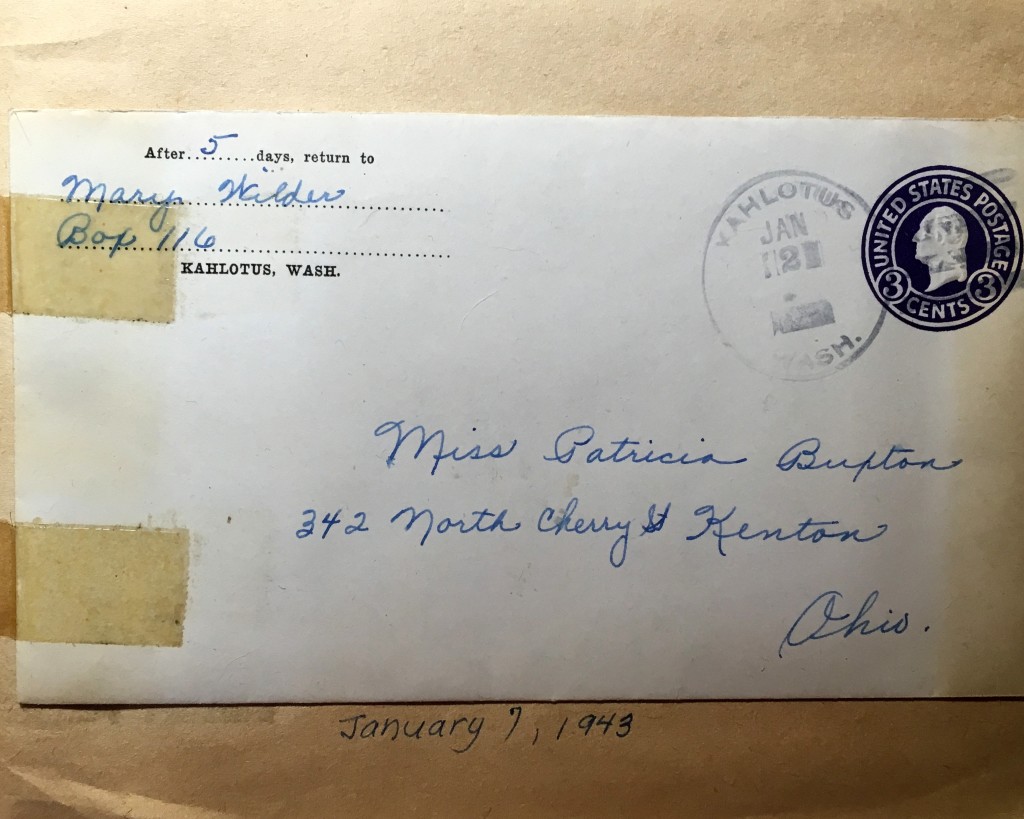 After..5......days, return to
Mary Wilder
Box 116
KAHLOTUS, WASH.
KAHLOTUS
JAN
2
WASH.
UNITED STATES POSTAGE
3 CENTS 3
Miss Patricia Buxton
342 North Cherry St Kenton
Ohio.
January 7, 1943